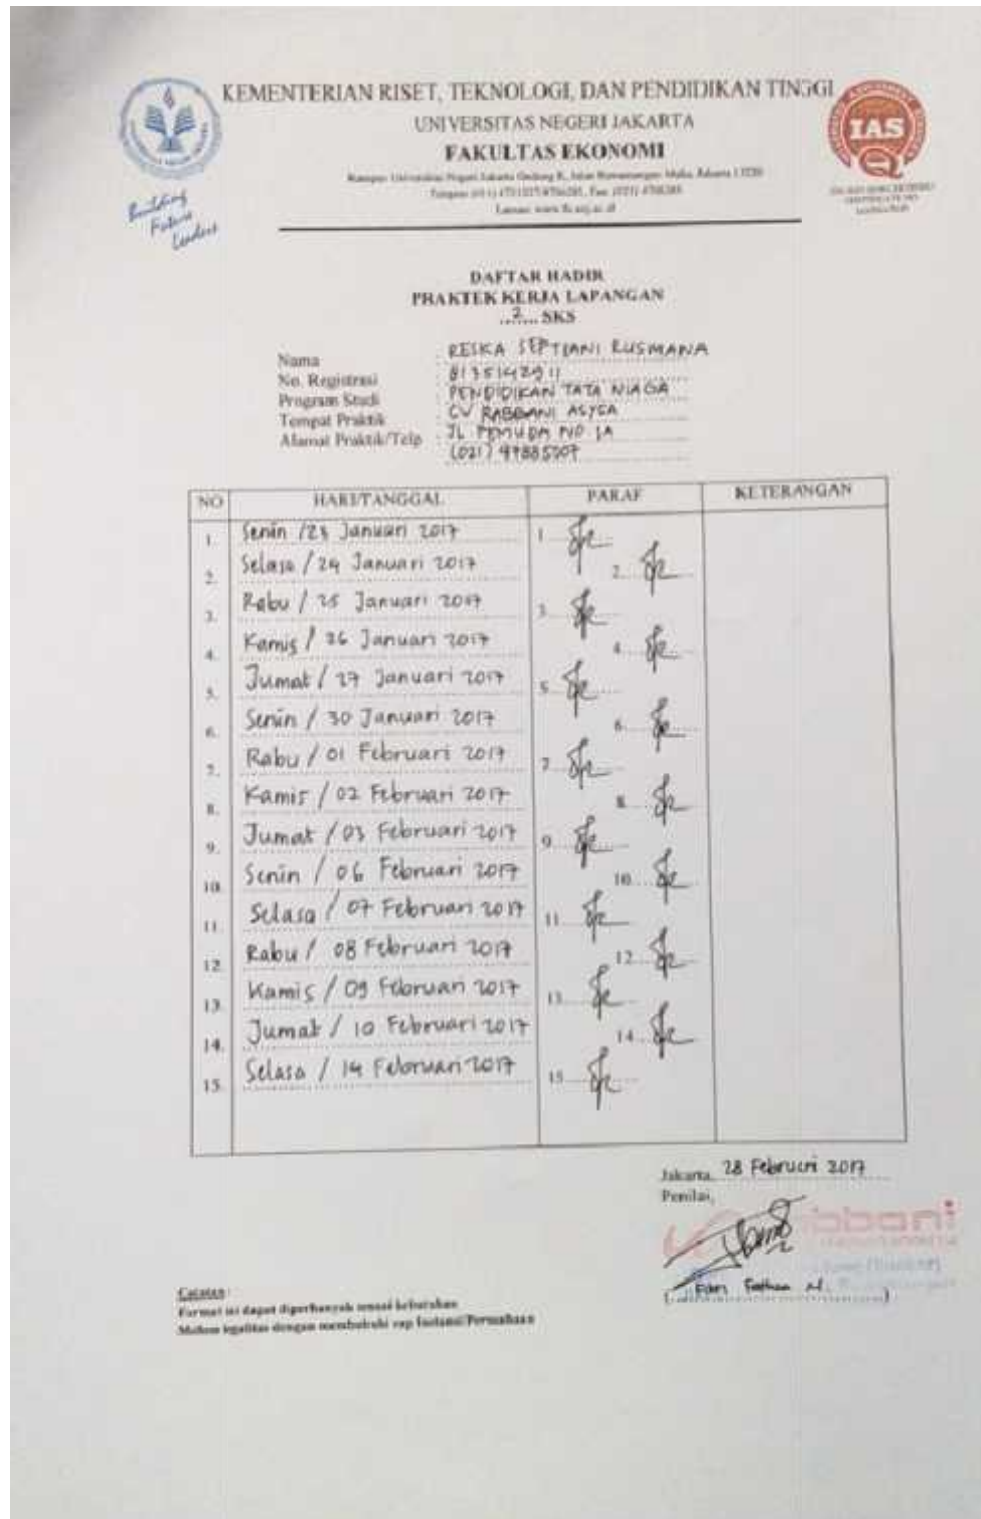 KEMENTERIAN RISET, TEKNOLOGI, DAN PENDIDIKAN TINGGI
UNIVERSITAS NEGERI JAKARTA
FAKULTAS EKONOMI
Kampus Universitas Negeri Jakarta Gedung R, Jalan Rawamangun Muka, Jakarta 13220
Laman: www.fe.unj.ac.id
IAS
Building
Future
Leaders
DAFTAR HADIR
PRAKTEK KERJA LAPANGAN
...2.... SKS
Nama : RESKA SEPTIANI RUSMANA
No. Registrasi : 8135142911
Program Studi : PENDIDIKAN TATA NIAGA
Tempat Praktik : CV RABBANI ASYSA
Alamat Praktik/Telp : JL PEMUDA NO 1A
(021)
NO HARI/TANGGAL PARAF KETERANGAN
1. Senin /23 Januari 2017 1
2. Selasa / 24 Januari 2017 2
3. Rabu / 25 Januari 2017 3
4. Kamis / 26 Januari 2017 4
5. Jumat / 27 Januari 2017 5
6. Senin / 30 Januari 2017 6
7. Rabu / 01 Februari 2017 7
8. Kamis / 02 Februari 2017 8
9. Jumat / 03 Februari 2017 9
10. Senin / 06 Februari 2017 10
11. Selasa / 07 Februari 2017 11
12. Rabu / 08 Februari 2017 12
13. Kamis / 09 Februari 2017 13
14. Jumat / 10 Februari 2017 14
15. Selasa / 14 Februari 2017 15
Jakarta, 28 Februari 2017
Penilai,
rabbani
Catatan :
Format ini dapat diperbanyak sesuai kebutuhan
Mohon legalitas dengan membubuhi cap Instansi/Perusahaan